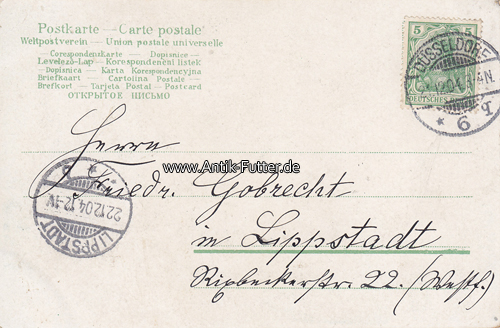 Postkarte — Carte postale
Weltpostverein — Union postale universelle
CorespondensKarte — Dopisnice
Levelező-Lap — Korespondenční listek
Dopisnica — Karta Korespondencyjna
Briefkaart — Cartolina Postale
Brefkort — Tarjeta Postal — Postcard
ОТКРЫТОЕ ПИСЬМО
5 5
DEUTSCHES
DÜSSELDORF
.12.04. 4-N.
* 6 g
Herrn
www.Antik-Futter.de
Friedr. Gobrecht
in Lippstadt
Rixbeckerstr. 22. (Westf.)
LIPPSTADT
22.12.04.12-1V